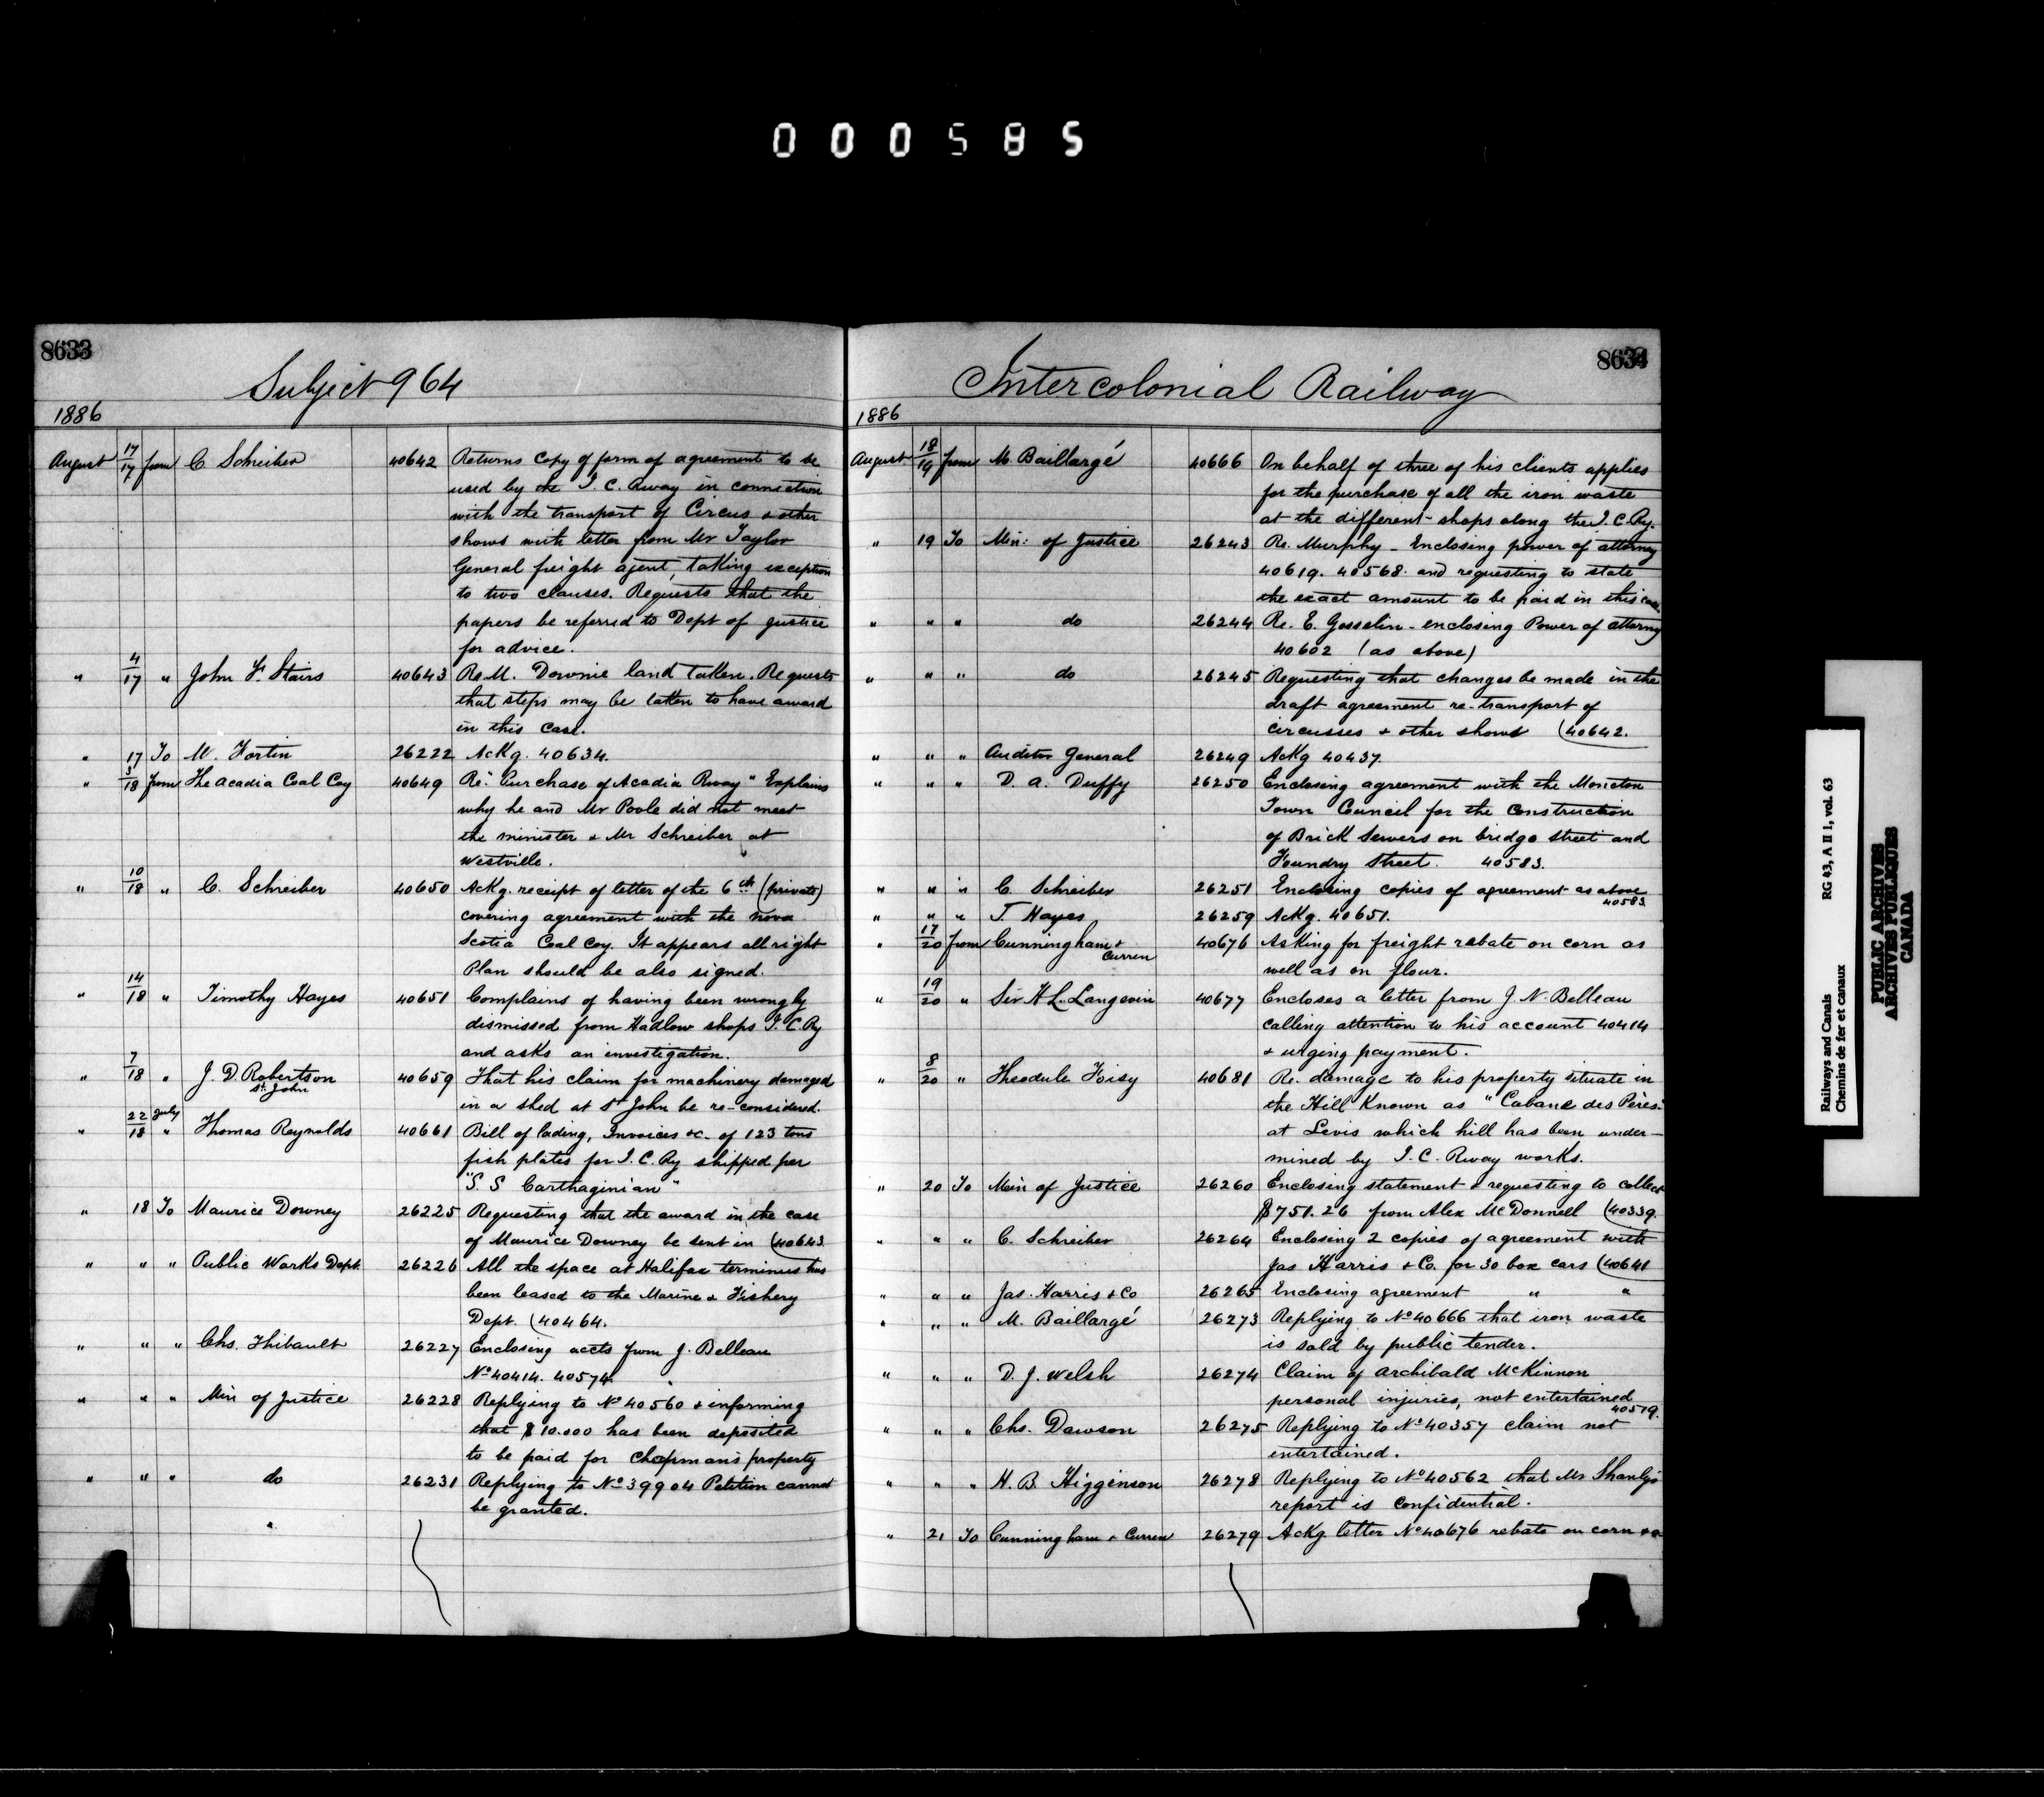 000585
8633
Subject 964
1886
August 17/17 from C. Schreiber 40642 Returns Copy of form of agreement to be
used by the I. C. Rway in connection
with the transport of Circus & other
shows with letter from Mr Taylor
General freight agent, taking exception
to two clauses. Requests that the
papers be referred to Dept of Justice
for advice.
" 4/17 " John F. Stairs 40643 Re M. Downie land taken. Requests
that steps may be taken to have award
in this case.
" 17 To M. Fortin 26222 Ackg. 40634.
" 3/18 from The Acadia Coal Coy 40649 Re "Purchase of Acadia Rway" Explains
why he and Mr Poole did not meet
the minister & Mr Schreiber at
Westville.
" 10/18 " C. Schreiber 40650 Ackg. receipt of letter of the 6th (private)
covering agreement with the Nova
Scotia Coal Coy. It appears all right
Plan should be also signed.
" 14/18 " Timothy Hayes 40651 Complains of having been wrongly
dismissed from Hadlow shops I. C. Ry
and asks an investigation.
" 7/18 " J. D. Robertson 40659 That his claim for machinery damaged
St. John
in a shed at St John be re-considered.
" 22 July/18 " Thomas Reynolds 40661 Bill of lading, Invoices &c. of 123 tons
fish plates for I. C. Ry shipped per
"S. S Carthaginian"
" 18 To Maurice Downey 26225 Requesting that the award in the case
of Maurice Downey be sent in (40643.
" " " Public Works Dept. 26226 All the space at Halifax terminus has
been leased to the Marine & Fishery
Dept. (40464.
" " " Chs. Thibault 26227 Enclosing accts from J. Belleau
No 40414. 40574.
" " " Min of Justice 26228 Replying to No 40560 & informing
that $10.000 has been deposited
to be paid for Chapman's property
" " " do 26231 Replying to No 39904 Petition cannot
be granted.
8634
Intercolonial Railway
1886
August 18/19 from M. Baillargé 40666 On behalf of three of his clients applies
for the purchase of all the iron waste
at the different shops along the I. C. Ry.
" 19 To Min: of Justice 26243 Re. Murphy - Enclosing power of attorney
40619. 40568. and requesting to state
the exact amount to be paid in this case.
" " " do 26244 Re. E. Gosselin - enclosing Power of attorney
40602 (as above)
" " " do 26245 Requesting that changes be made in the
draft agreement re-transport of
circusses & other shows (40642.
" " " Auditor General 26249 Ackg 40437.
" " " D. A. Duffy 26250 Enclosing agreement with the Moncton
Town Council for the Construction
of Brick Sewers on bridge street and
Foundry Street. 40583.
" " " C. Schreiber 26251 Enclosing copies of agreement as above
40583.
" " " T. Hayes 26259 Ackg. 40651.
" 17/20 from Cunningham & 40676 Asking for freight rebate on corn as
Curren
well as on flour.
" 19/20 " Sir H. L. Langevin 40677 Encloses a letter from J. N. Belleau
calling attention to his account 40414
& urging payment.
" 8/20 " Theodule Foisy 40681 Re. damage to his property situate in
the Hill Known as "Cabane des Pères"
at Levis which hill has been under-
mined by I. C. Rway works.
" 20 To Min of Justice 26260 Enclosing statement & requesting to collect
$751.26 from Alex McDonnell (40339.
" " " C. Schreiber 26264 Enclosing 2 copies of agreement with
Jas Harris & Co. for 30 box cars (40641
" " " Jas. Harris & Co 26265 Enclosing agreement " "
" " " M. Baillargé 26273 Replying to No 40666 that iron waste
is sold by public tender.
" " " D. J. Welsh 26274 Claim of Archibald McKinnon
personal injuries, not entertained
40519.
" " " Chs. Dawson 26275 Replying to No 40357 claim not
entertained.
" " " H. B. Higginson 26278 Replying to No 40562 that Mr Shanly's
report is confidential.
" 21 To Cunningham & Curren 26279 Ackg letter No 40676 rebate on corn &c
Railways and Canals RG 43, A II 1, vol. 63
Chemins de fer et canaux
PUBLIC ARCHIVES
ARCHIVES PUBLIQUES
CANADA